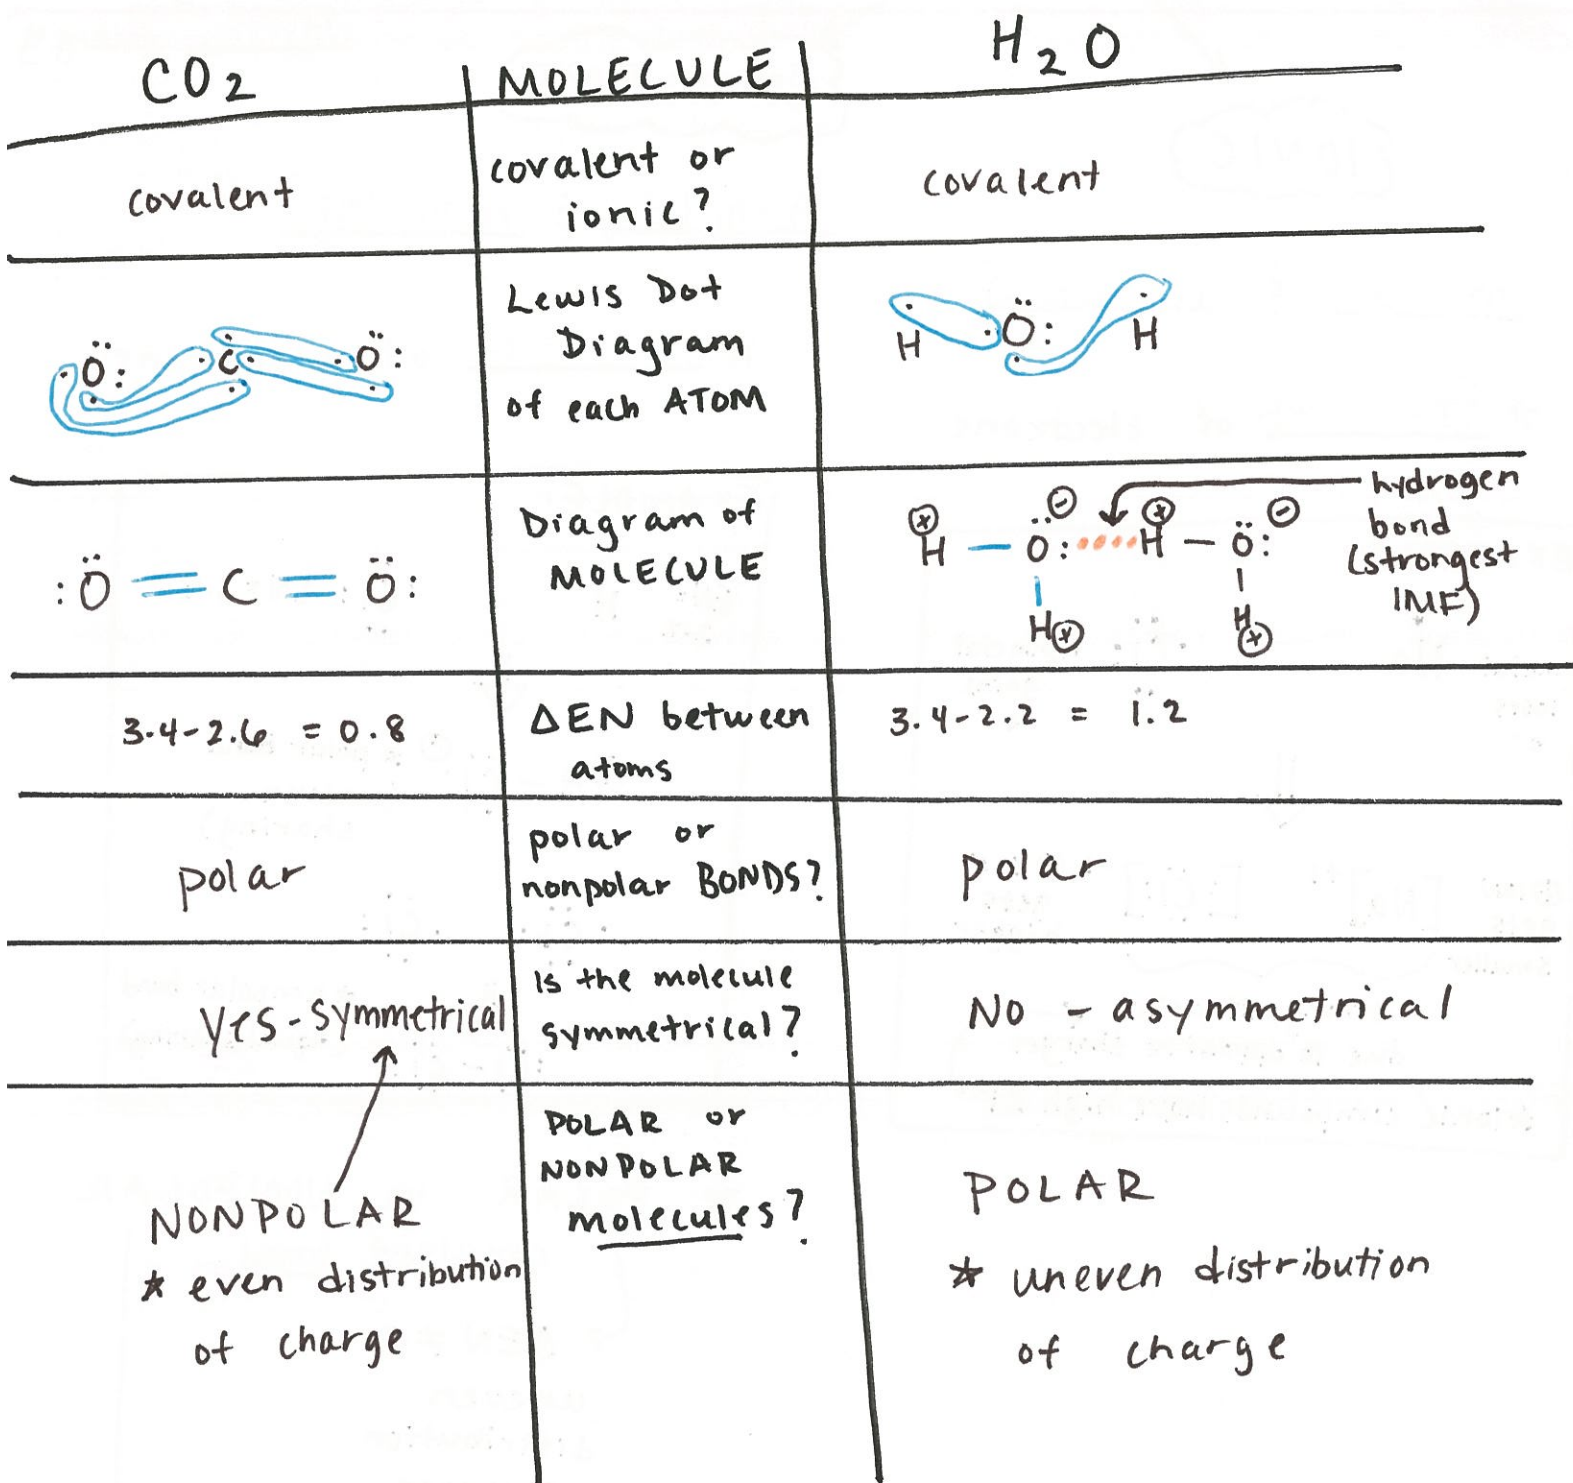 CO2 MOLECULE H2O
covalent
covalent or
ionic?
covalent
:Ö: C Ö:
Lewis Dot
Diagram
of each ATOM
H Ö: H
:Ö = C = Ö:
Diagram of
MOLECULE
H — Ö: H — Ö:
H H
+ - + -
+ +
hydrogen
bond
(strongest
IMF)
3.4-2.6 = 0.8
ΔEN between
atoms
3.4-2.2 = 1.2
polar
polar or
nonpolar BONDS?
polar
yes - symmetrical
Is the molecule
symmetrical?
No - asymmetrical
NONPOLAR
* even distribution
of charge
POLAR or
NONPOLAR
molecules?
POLAR
* uneven distribution
of charge